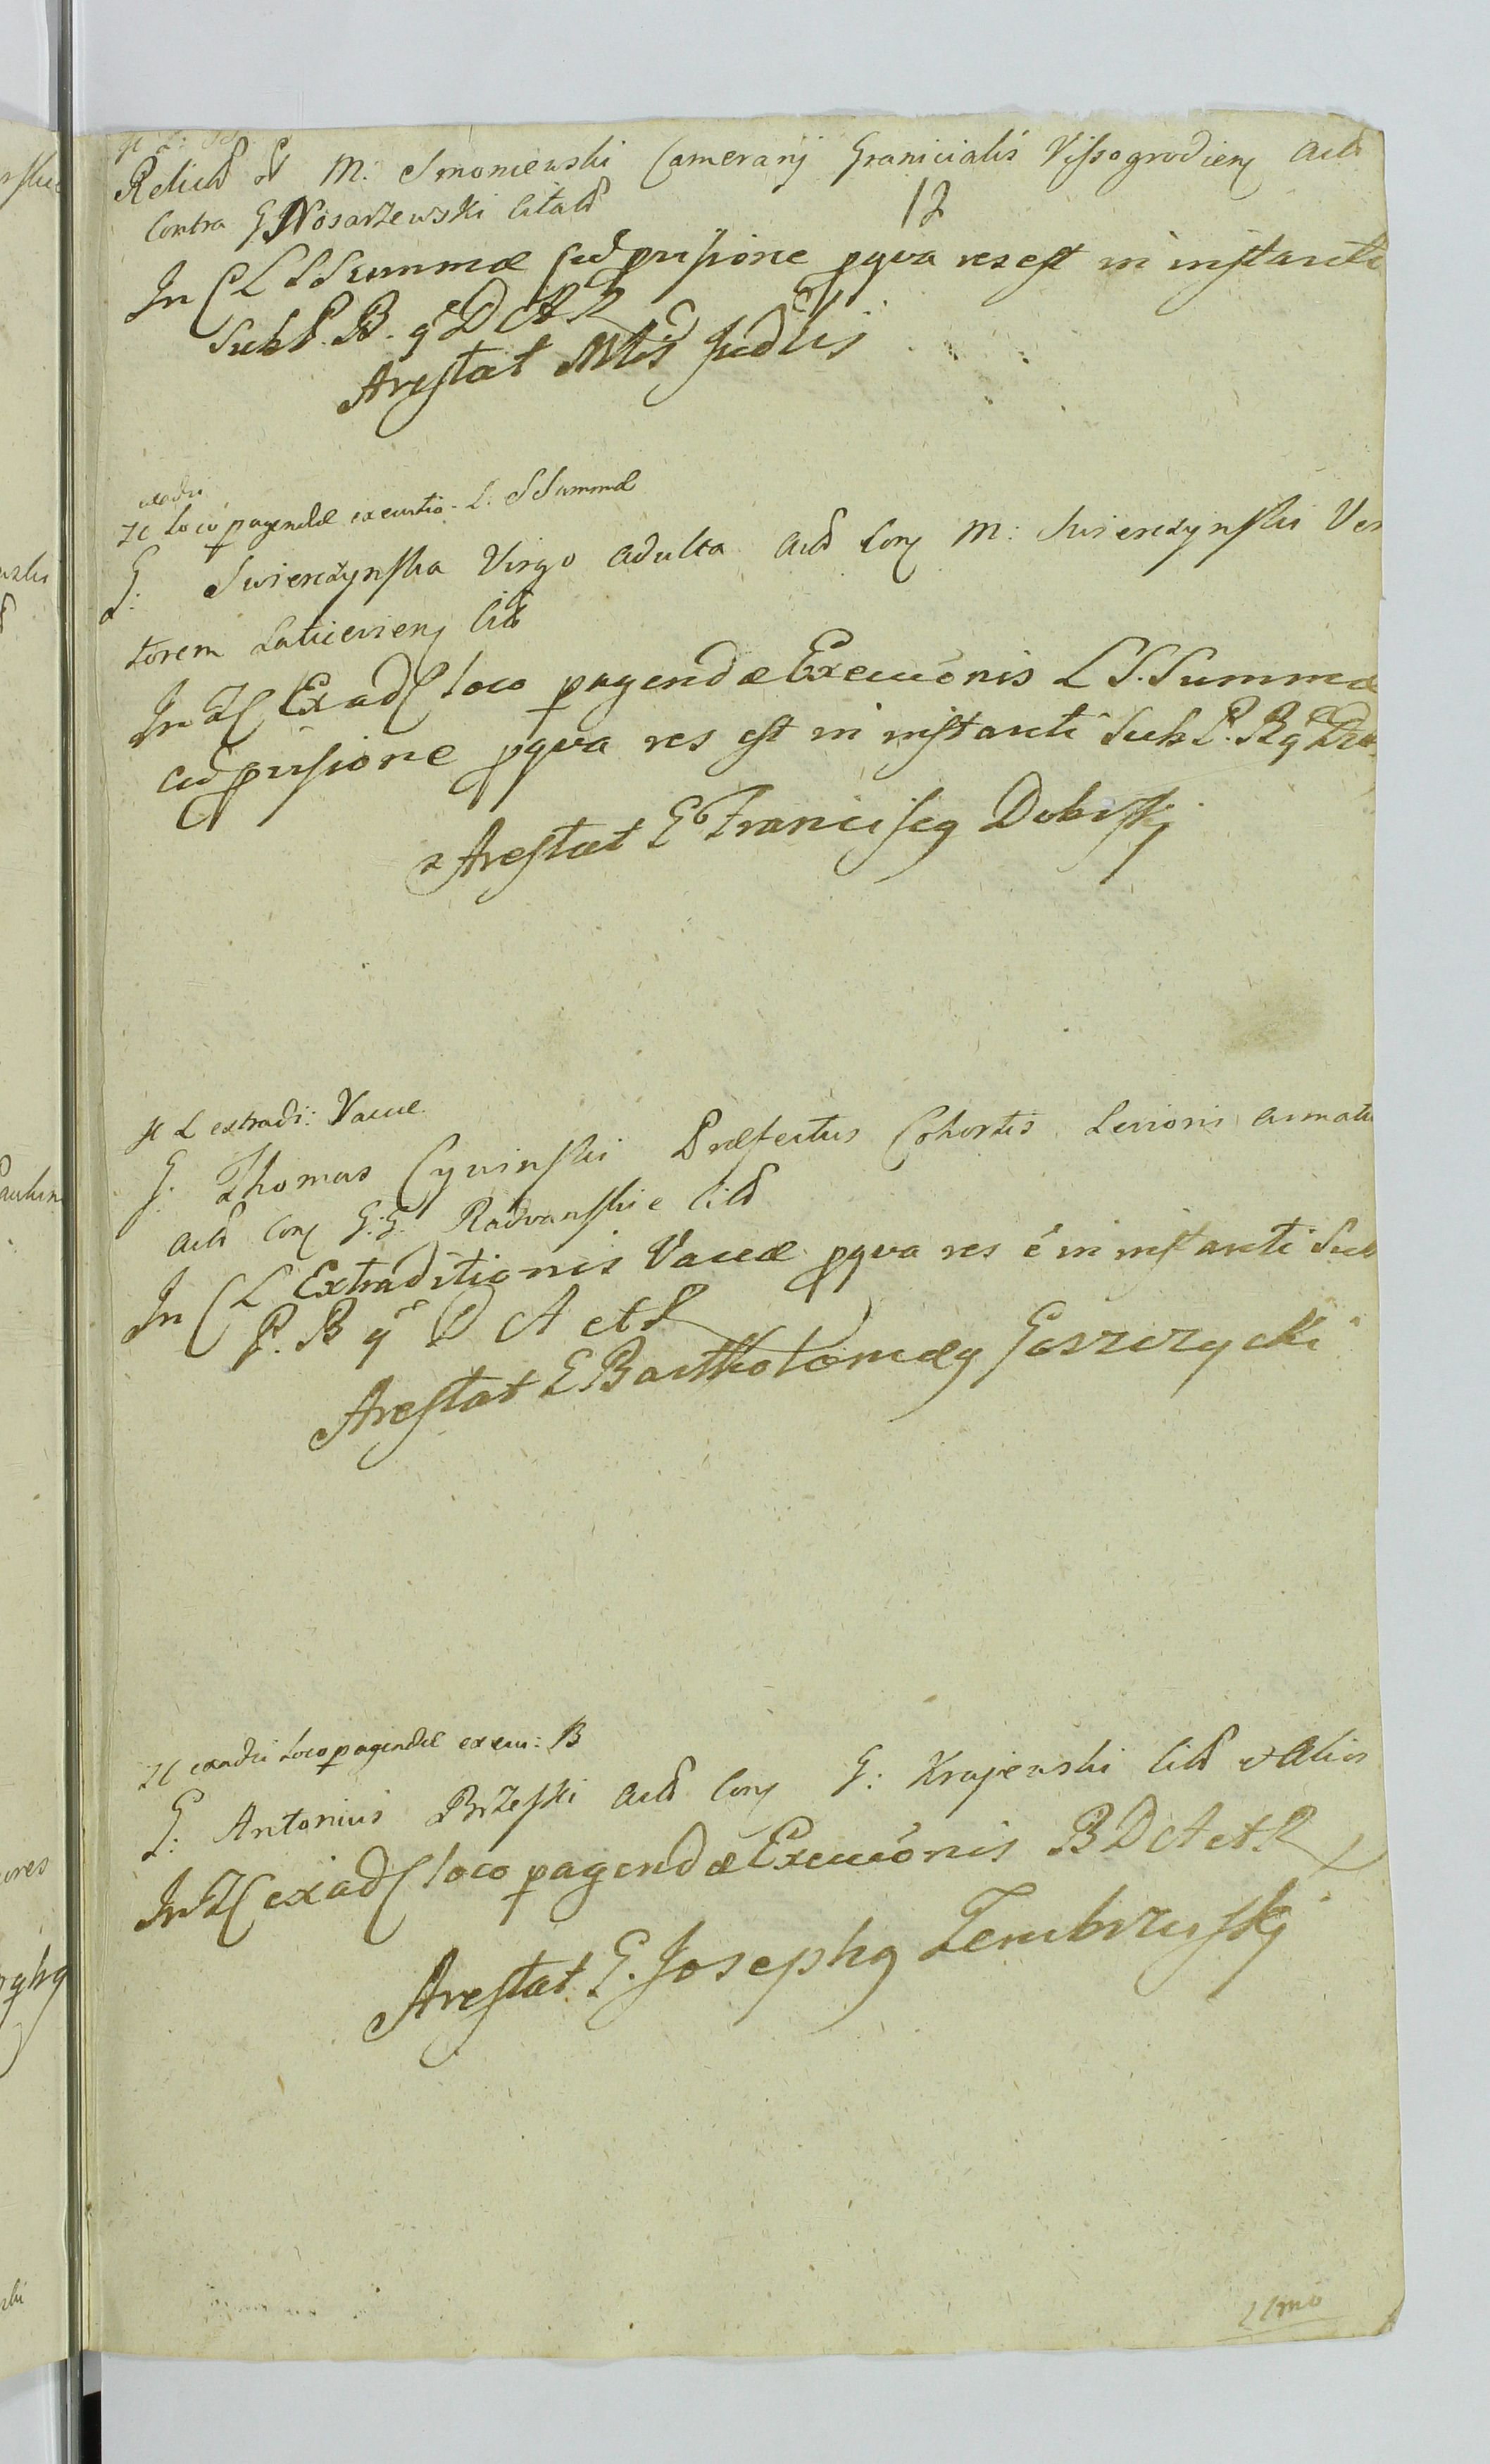 Relictã M: Smoniewski Camerarij Granicialis Vissogrodien Actã
12
contra G Nosarzewski Citatã
In C L S Summæ prisione pqva res est in instanti
Sub P. B. q D A R
Arestat Mtis Judlis
exadu
IC loco pagendæ executio. L. S Summæ
G: Swierczynska Virgo adulta Actã Con M: Swierczynski Ven
torem Laticivien Citã
In IC Exad loco pagendæ Execuõnis L S. Summæ
ad prisione pqva res est in instanti Sub P. B q
Arestat G Franciscq Dobrskj
L extradi: Vaccæ
G. Thomas Cywinski Præfectus Cohortis Levioris armatu
Actã Con G: G: Radvanskie Citã
In C L Extraditionis Vaccæ pqva res ẽ in instanti Sub
P. B q D A et R
Arestat G Bartholomæq Goszczycki
IC exadu Loco pagendæ execu: B
G: Antonius Brzeski Actã Con G: Krajewski Citã et Alios
In IC exad loco pagendæ Execuõnis B D A et R
Arestat G. Josephq Zembrzuskj